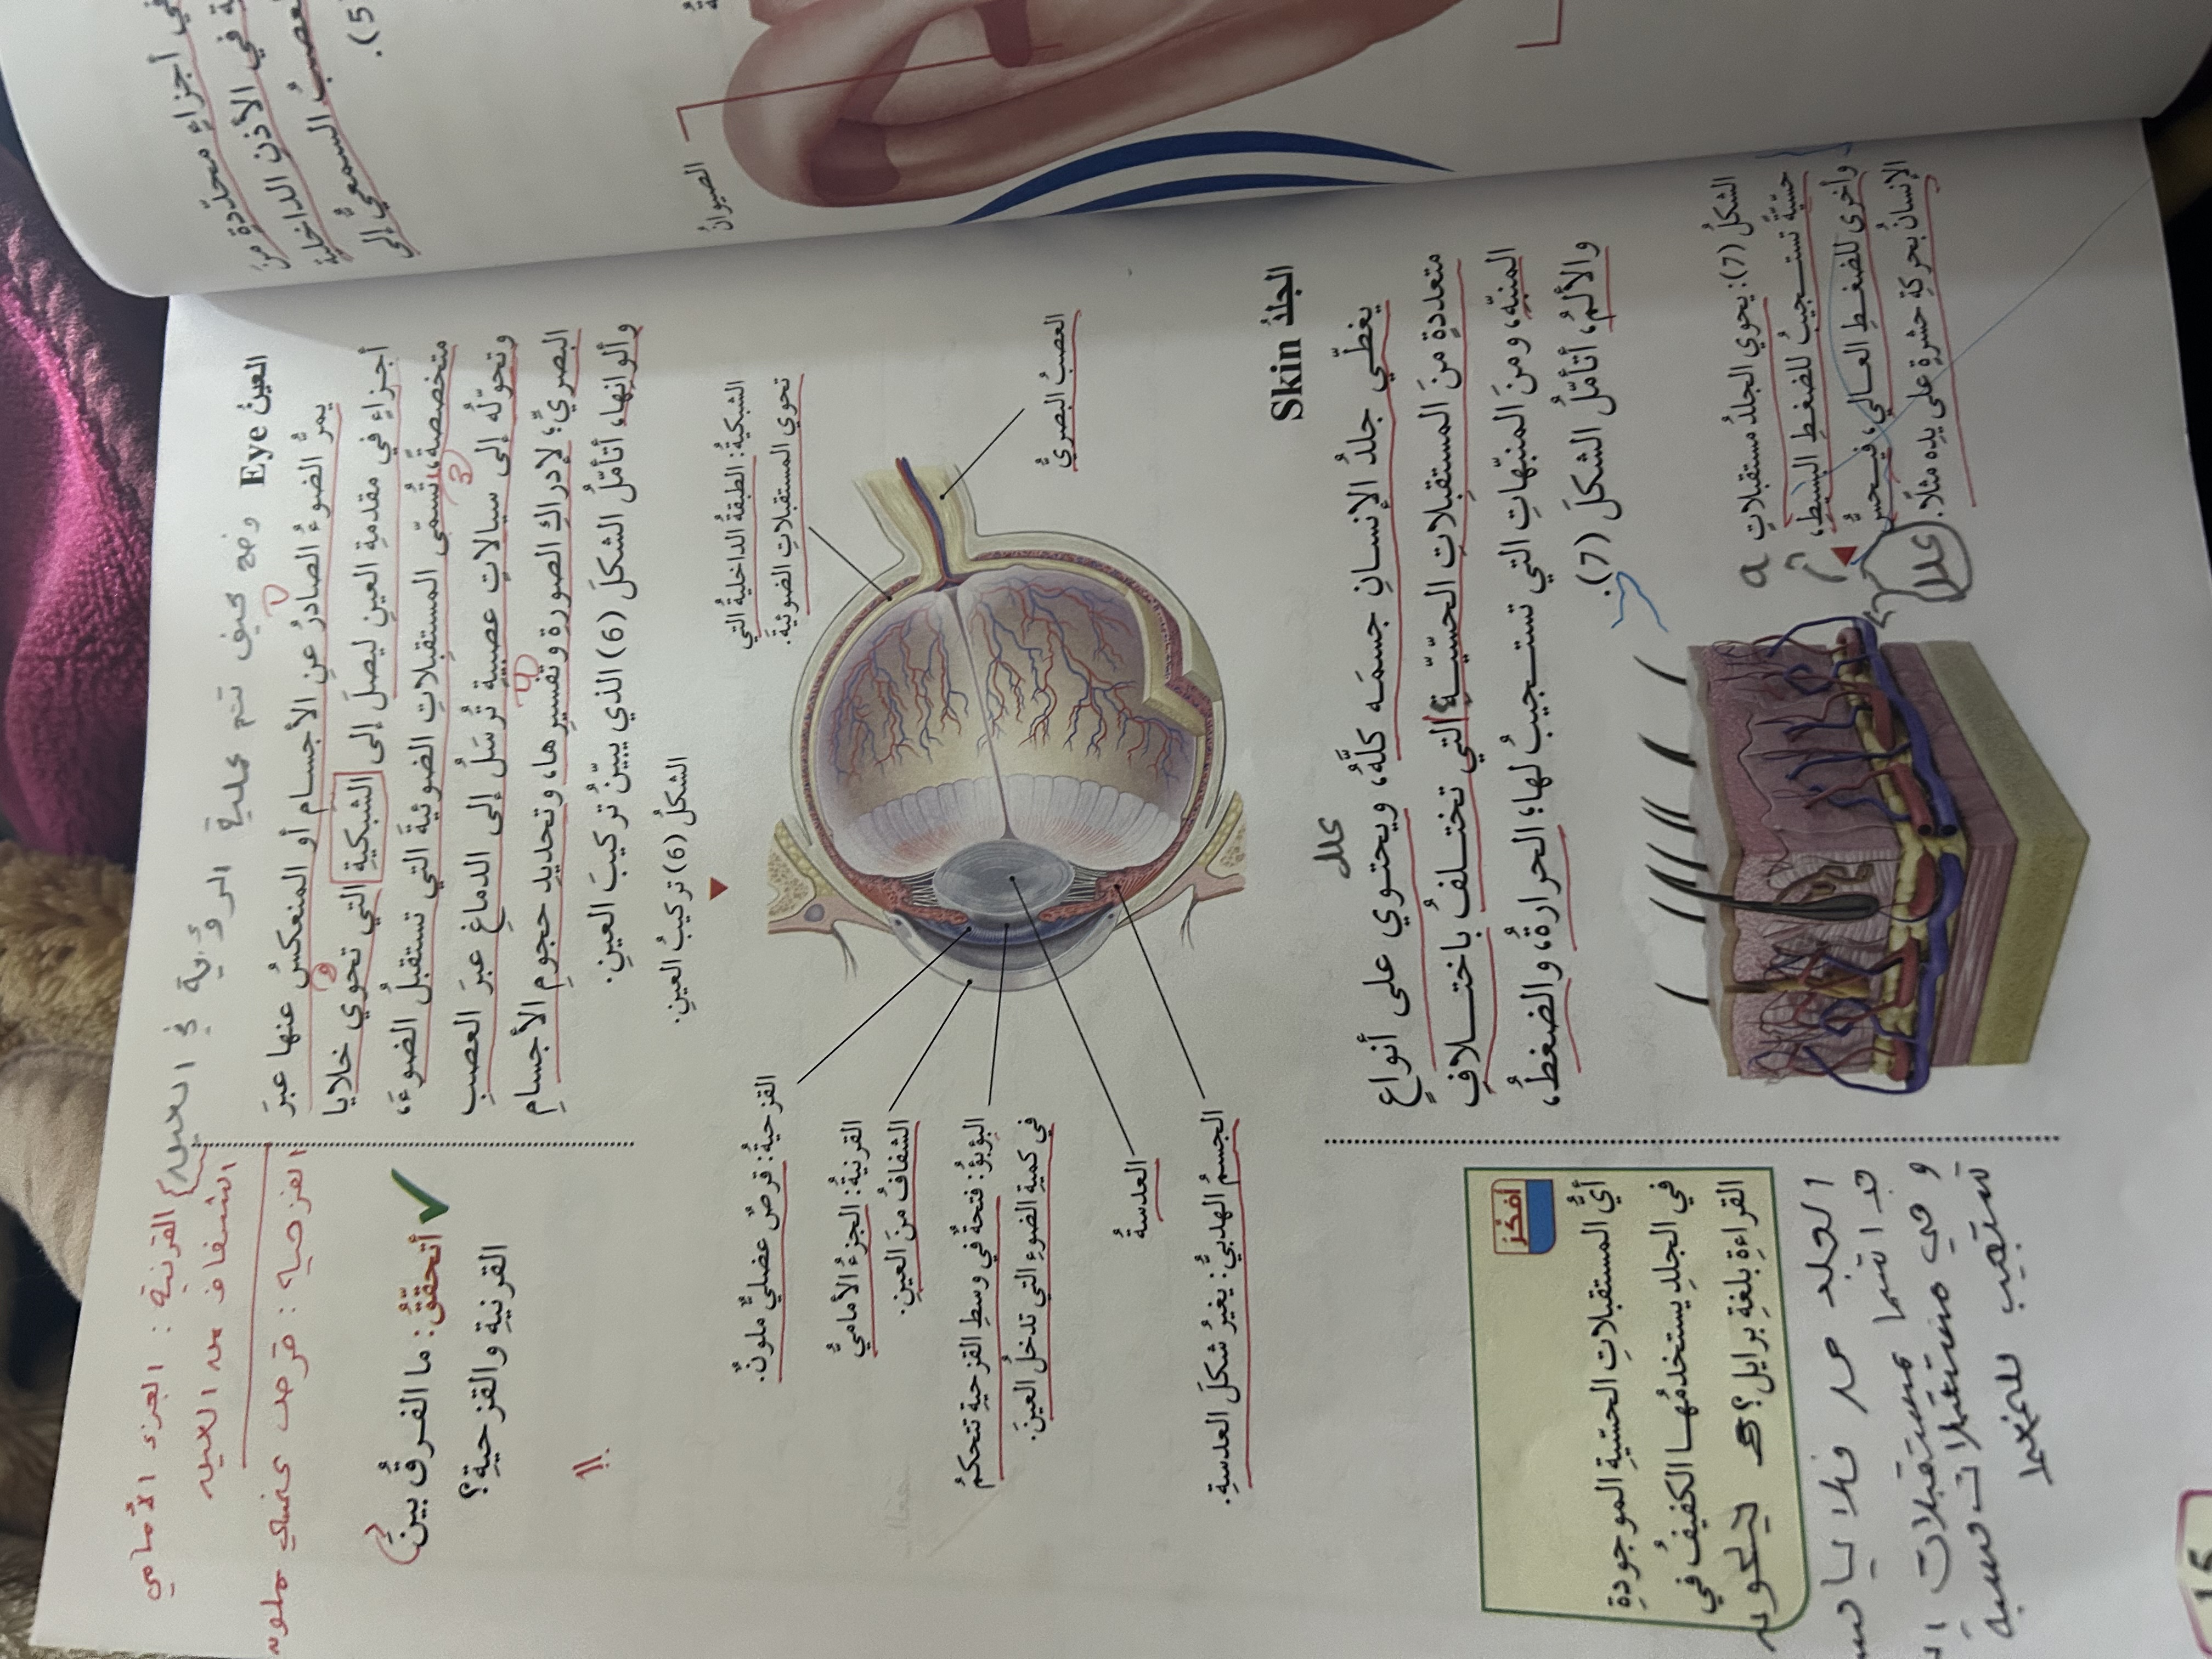 وضح كيف تتم عملية الرؤية في العين
القرنية : الجزء الأمامي
الشفاف من العين
القزحية : قرص عضلي ملون
العينُ Eye
يمرُّ الضوءُ الصادرُ عنِ الأجسامِ أو المنعكسُ عنها عبرَ
أجزاءٍ في مقدمةِ العينِ ليصلَ إلى الشبكيةِ التي تحوي خلايا
متخصصةً، تُسمّى المستقبِلاتِ الضوئيةَ التي تستقبلُ الضوءَ،
وتحوّلُه إلى سيالاتٍ عصبيةٍ تُرسَلُ إلى الدماغِ عبرَ العصبِ
البصريِّ؛ لإدراكِ الصورةِ وتفسيرِها، وتحديدِ حجومِ الأجسامِ
وألوانِها، أتأمّلُ الشكلَ (6) الذي يبيّنُ تركيبَ العينِ.
أتحقّقُ: ما الفرقُ بينَ
القرنيةِ والقزحيةِ؟
الشكلُ (6) تركيبُ العينِ.
الشبكيةُ: الطبقةُ الداخليةُ التي
تحوي المستقبلاتِ الضوئيةَ.
العصبُ البصريُّ
القزحيةُ: قرصٌ عضليٌّ ملونٌ.
القرنيةُ: الجزءُ الأماميُّ
الشفافُ منَ العينِ.
البؤبؤُ: فتحةٌ في وسطِ القزحيةِ تتحكمُ
في كميةِ الضوءِ التي تدخلُ العينَ.
العدسةُ
الجسمُ الهدبيُّ: يغيرُ شكلَ العدسةِ.
الجلدُ Skin
علل
يغطّي جلدُ الإنسانِ جسمَه كلَّهُ، ويحتوي على أنواعٍ
متعددةٍ منَ المستقبِلاتِ الحسّيّةِ التي تختلفُ باختلافِ
المنبّهِ، ومنَ المنبّهاتِ التي تستجيبُ لها؛ الحرارةُ، والضغطُ،
والألمُ، أتأمّلُ الشكلَ (7).
الشكلُ (7): يحوي الجلدُ مستقبلاتٍ
حسّيّةً تستجيبُ للضغطِ البسيطِ،
وأخرى للضغطِ العالي، فيحسُّ
الإنسانُ بحركةِ حشرةٍ على يدِه مثلًا.
علل
أفكّرُ
أيُّ المستقبلاتِ الحسّيةِ الموجودةِ
في الجلدِ يستخدمُها الكفيفُ في
القراءةِ بلغةِ برايل؟
الجلد من خلايا
مستقبلات
وهي مستقبلات حسية
تستجيب للضغط
في أجزاءٍ محدّدةٍ منَ
في الأذنِ الداخليةِ
السمعيُّ إلى
الصيوانُ
15